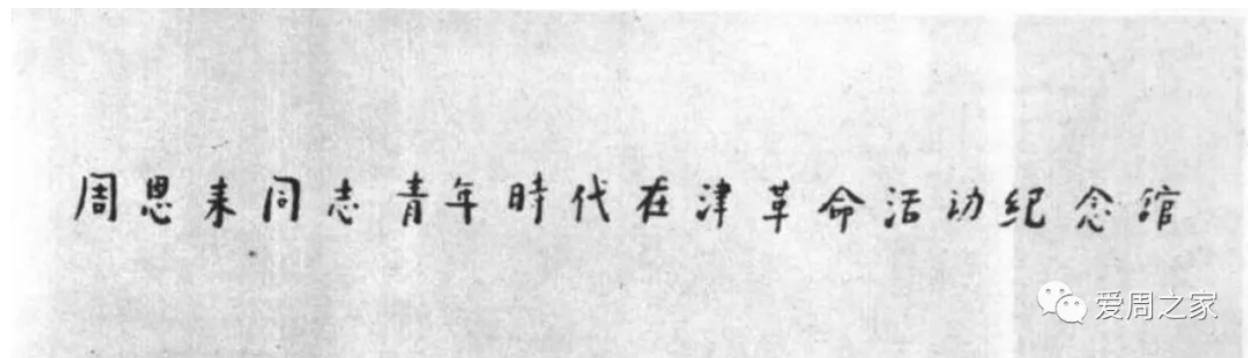 周恩来同志青年時代在津革命活动纪念馆
爱周之家